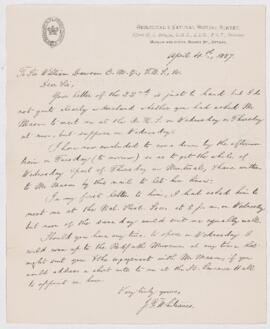 GEOLOGICAL & NATURAL HISTORY SURVEY,
MUSEUM AND OFFICE, SUSSEX ST., OTTAWA,
April 4th, 1887.
To Sir William Dawson C.M.G., F.R.S., &c
Dear Sir,
Your letter of the is just to hand but I do
not quite clearly understand whether you had asked Mr
to meet me at the on Wednesday or Thursday
at noon, but suppose on Wednesday.
I have now concluded to come down by the afternoon
train on Tuesday (to morrow) so as to get the whole of
Wednesday & part of Thursday in Montreal, & have written
to Mr by this mail to let him know.
In my first letter to him, I had asked him to
meet me at the Nat. Hist. Socy at 2 p.m. on Wednesday
but noon of the same day would suit me equally well.
Should you have any time to spare on Wednesday I
could come up to the Redpath Museum at any time
out of the engagement with Mr if you
could address a short note to me at the St. Lawrence Hall
to appoint an hour.
Very truly yours,
J. F. Whiteaves.